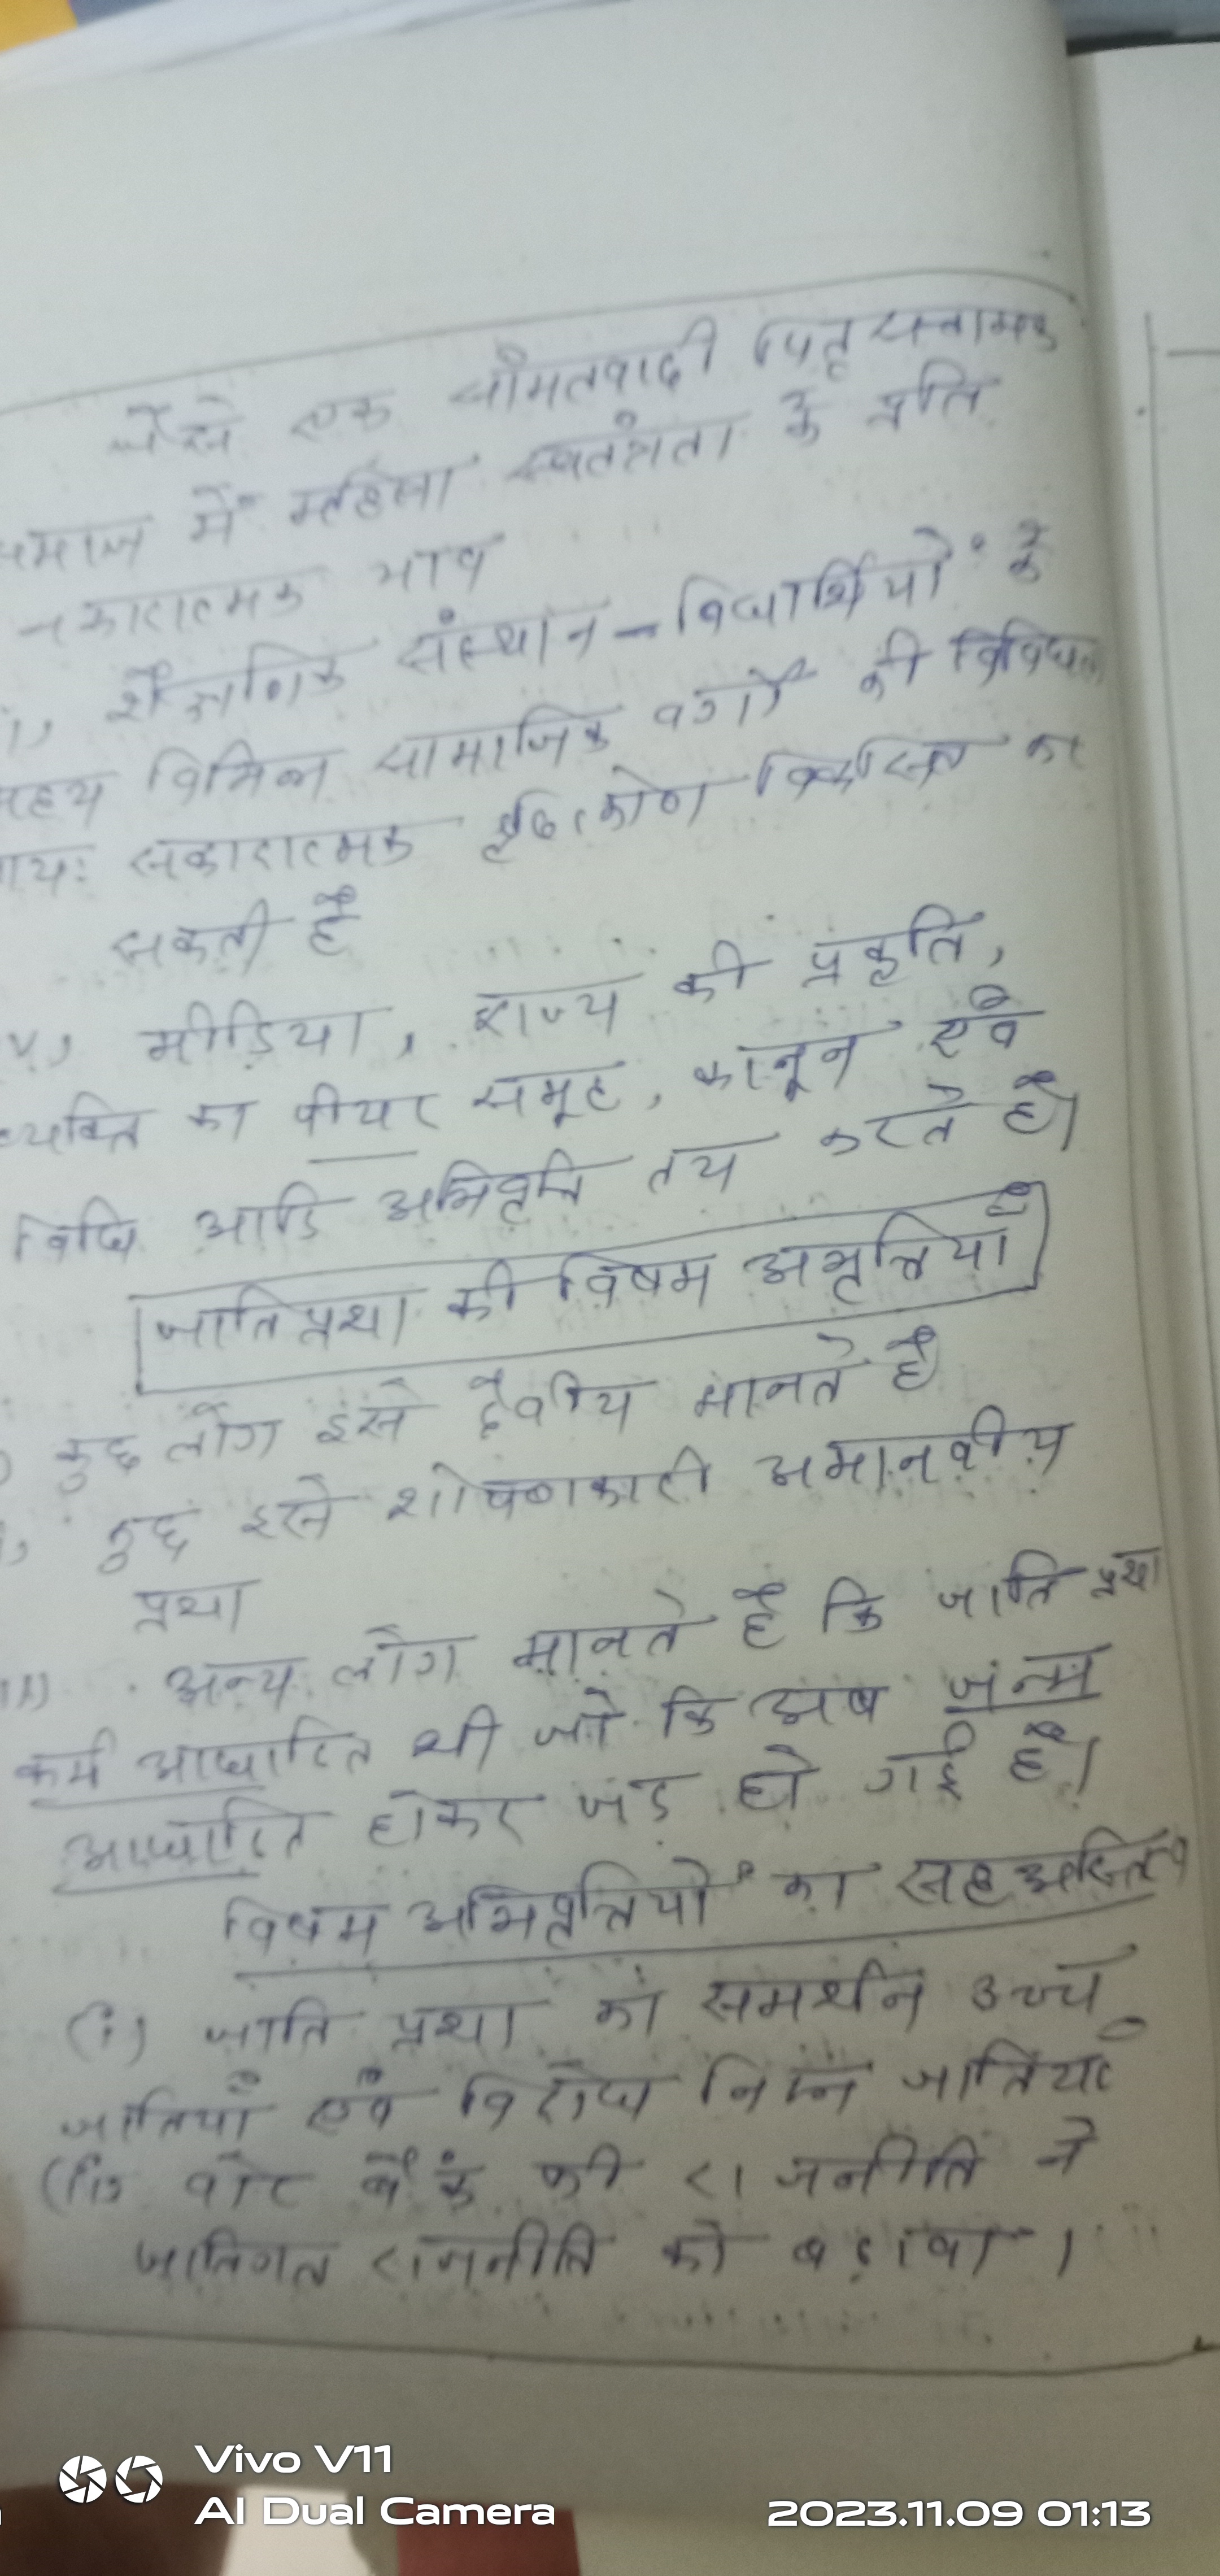 जैसे एक सामंतवादी पितृसत्तामक
समाज में महिला स्वतंत्रता के प्रति
नकारात्मक भाव
शैक्षणिक संस्थान - विद्यार्थियों के
मध्य विभिन्न सामाजिक वर्गों की विविधता
सकारात्मक दृष्टिकोण विकसित कर
सकती है
मीडिया, राज्य की प्रकृति,
व्यक्ति का पीयर समूह, कानून एवं
विधि आदि अभिवृत्ति तय करते है।
जातिप्रथा की विषम अभृत्तियाँ
कुछ लोग इसे दैवीय मानते है
कुछ इसे शोषणकारी अमानवीय
प्रथा
अन्य लोग मानते है कि जाति प्रथा
कर्म आधारित थी जो कि अब जन्म
आधारित होकर जड़ हो गई है।
विषम अभिवृत्तियों का सहअस्तित्व
(i) जाति प्रथा का समर्थन उच्च
जातियाँ एवं विरोध निम्न जातियां
(ii) वोट बैंक की राजनीति ने
जातिगत राजनीति को बढ़ावा।
Vivo V11
AI Dual Camera
2023.11.09 01:13